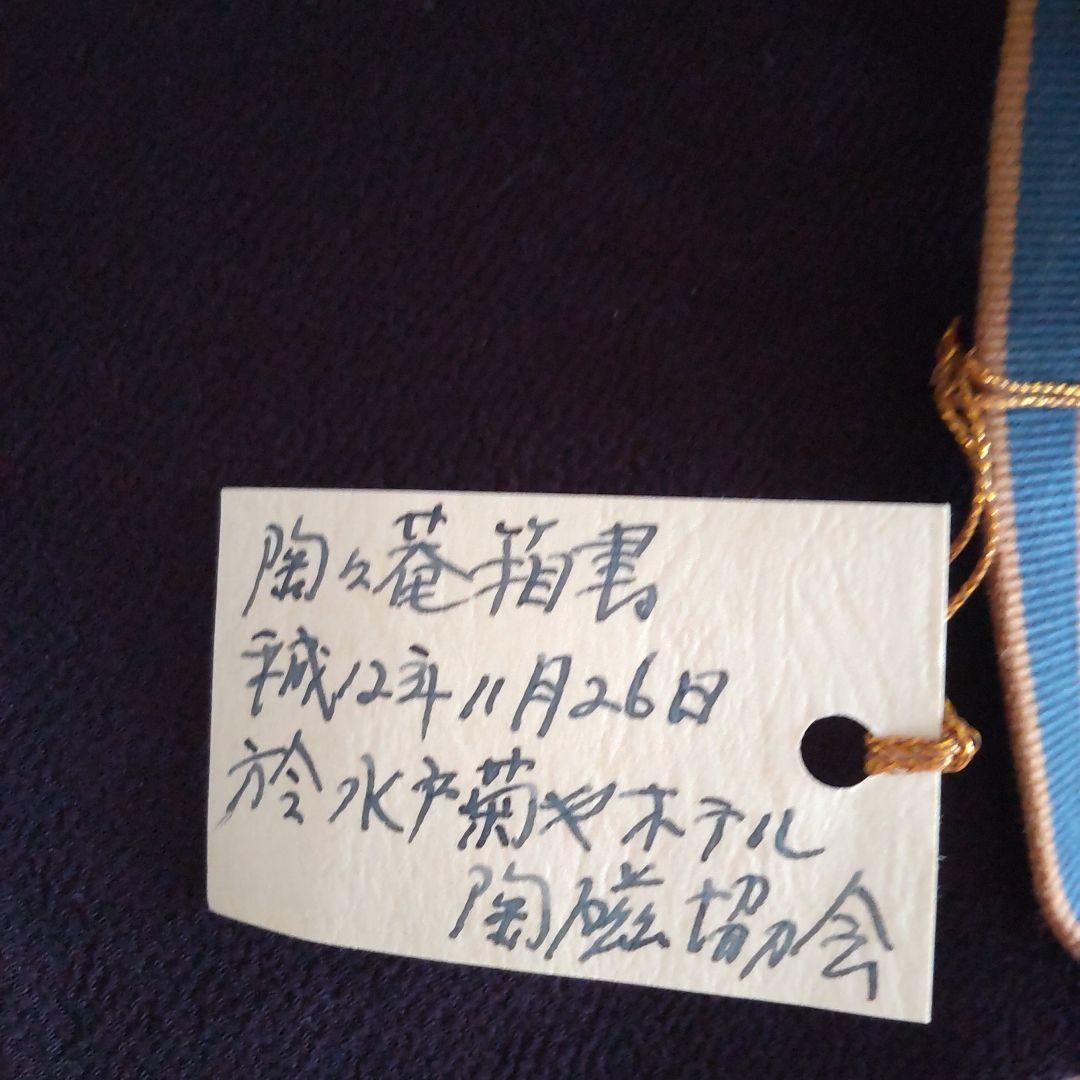 陶々菴箱書
平成12年11月26日
於水戸菊やホテル
陶磁協会